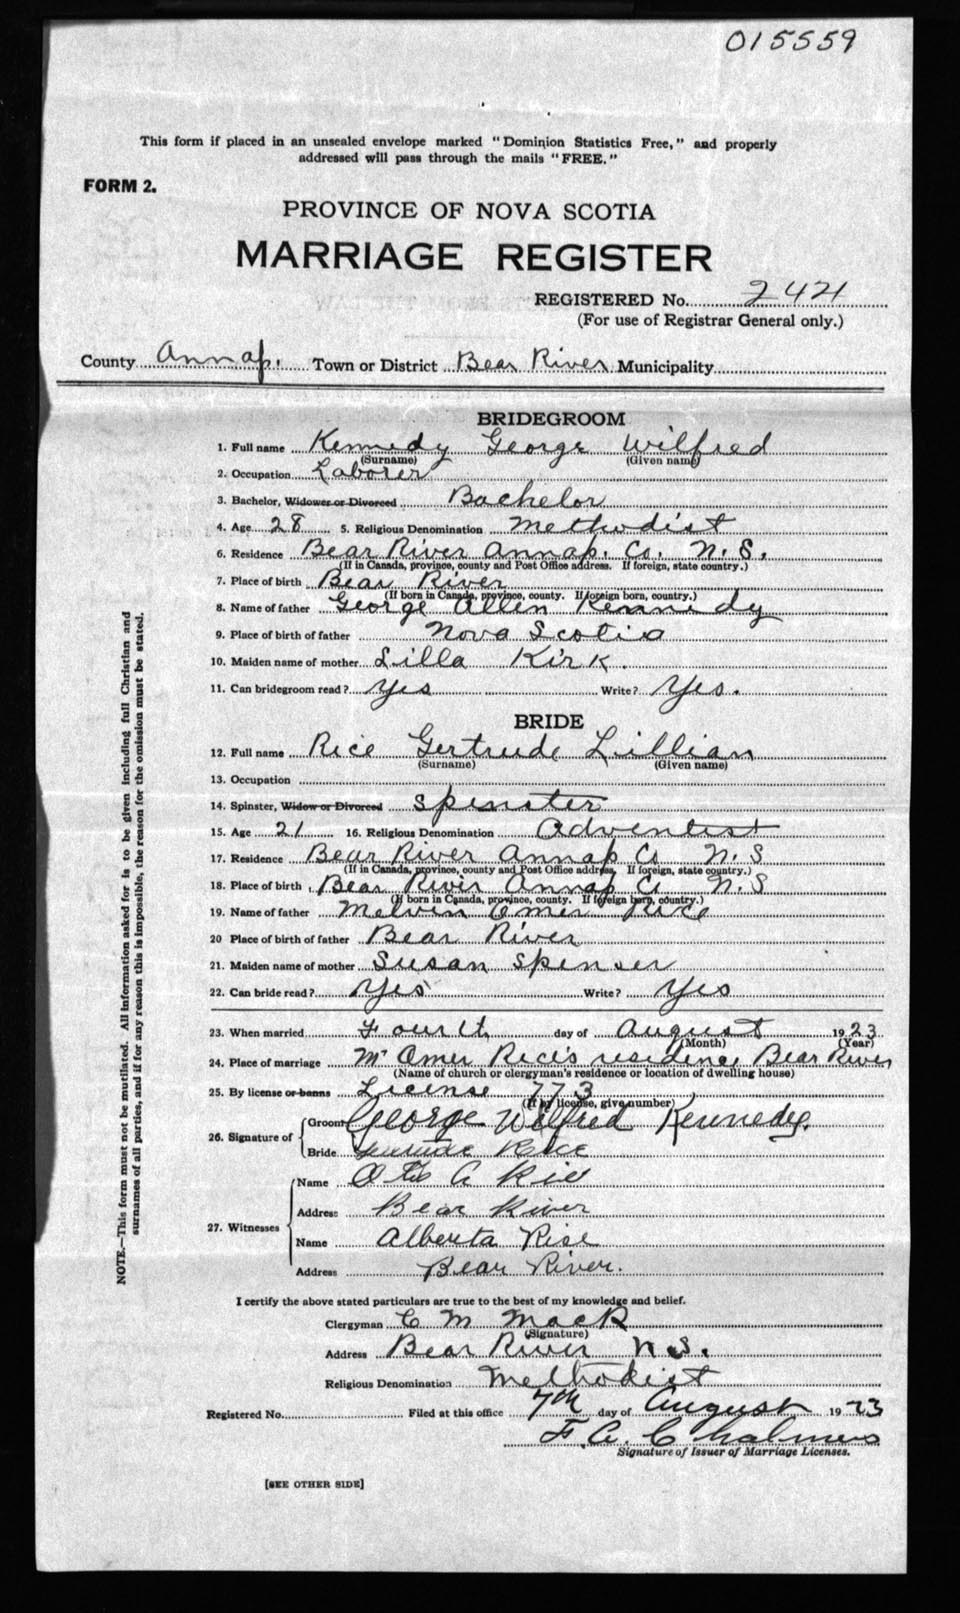 015559
This form if placed in an unsealed envelope marked "Dominion Statistics Free," and properly
addressed will pass through the mails "FREE."
FORM 2.
PROVINCE OF NOVA SCOTIA
MARRIAGE REGISTER
REGISTERED No. 2421
(For use of Registrar General only.)
County Annap. Town or District Bear River Municipality
BRIDEGROOM
1. Full name Kennedy George Wilfred
(Surname) (Given name)
2. Occupation Laborer
3. Bachelor, Widower or Divorced Bachelor
4. Age 28 5. Religious Denomination Methodist
6. Residence Bear River Annap. Co. N. S.
(If in Canada, province, county and Post Office address. If foreign, state country.)
7. Place of birth Bear River
(If born in Canada, province, county. If foreign born, country.)
8. Name of father George Allen Kennedy
9. Place of birth of father Nova Scotia
10. Maiden name of mother Lilla Kirk.
11. Can bridegroom read? Yes Write? Yes.
BRIDE
12. Full name Rice Gertrude Lillian
(Surname) (Given name)
13. Occupation
14. Spinster, Widow or Divorced Spenster
15. Age 21 16. Religious Denomination Adventist
17. Residence Bear River Annap Co N. S
(If in Canada, province, county and Post Office address, If foreign, state country.)
18. Place of birth Bear River Annap Co N. S
(If born in Canada, province, county. If foreign born, country.)
19. Name of father Melvin Omer Rice
20 Place of birth of father Bear River
21. Maiden name of mother Susan Spenser
22. Can bride read? Yes Write? Yes
23. When married Fourth day of August 1923
(Month) (Year)
24. Place of marriage Mr Omer Rice's residence, Bear River
(Name of church or clergyman's residence or location of dwelling house)
25. By license or banns License 773
(If by license, give number)
26. Signature of Groom George Wilfred Kennedy.
Bride Gertrude Rice
27. Witnesses Name A Rice
Address Bear River
Name Alberta Rise
Address Bear River.
I certify the above stated particulars are true to the best of my knowledge and belief.
Clergyman C M Mack
(Signature)
Address Bear River N.S.
Religious Denomination Methodist
Registered No. Filed at this office 7th day of August 1923
F. A. Chalmers
Signature of Issuer of Marriage Licenses.
[SEE OTHER SIDE]
NOTE.—This form must not be mutilated. All information asked for is to be given including full Christian and
surnames of all parties, and if for any reason this is impossible, the reason for the omission must be stated.